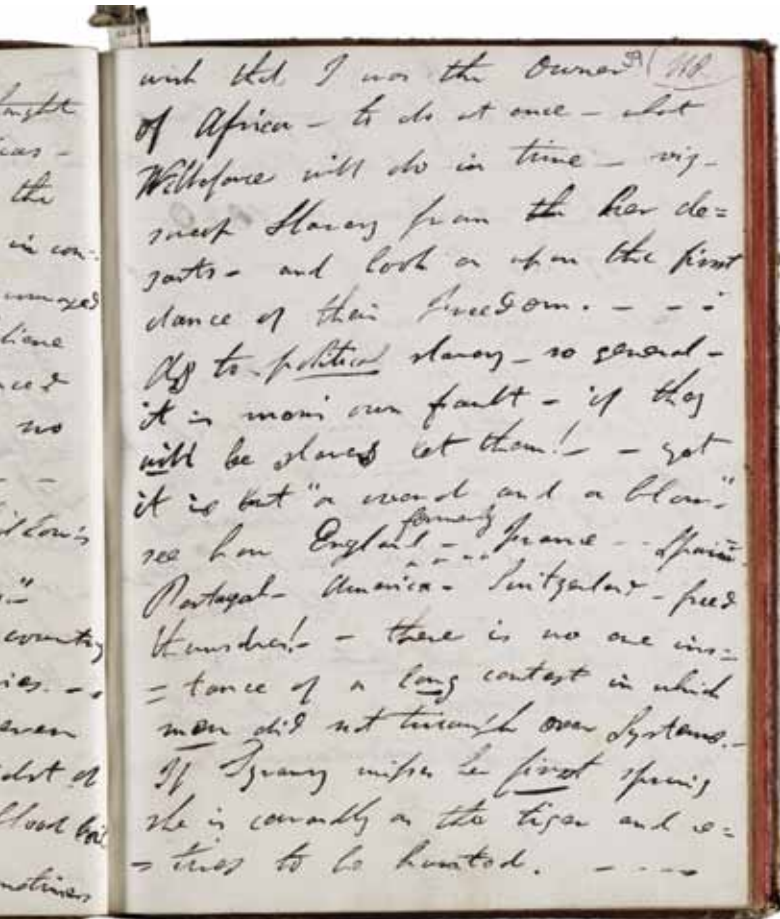 the
in con-
no
country
even
wish that I was the Owner
of Africa - to do at once - what
Wilberforce will do in time - viz -
sweep Slavery from the her de=
sarts - and look on upon the first
dance of their Freedom. - - -
As to political slavery - so general -
it is man's own fault - if they
will be slaves let them! - - yet
it is but "a word and a blow" -
see how England formerly - France - - Spain -
Portugal - America - Switzerland - freed
themselves! - - there is no one ins=
=tance of a long contest in which
men did not triumph over Systems. -
If Tyranny misses her first spring
she is cowardly as the tiger and re=
=tires to be hunted. - - - -